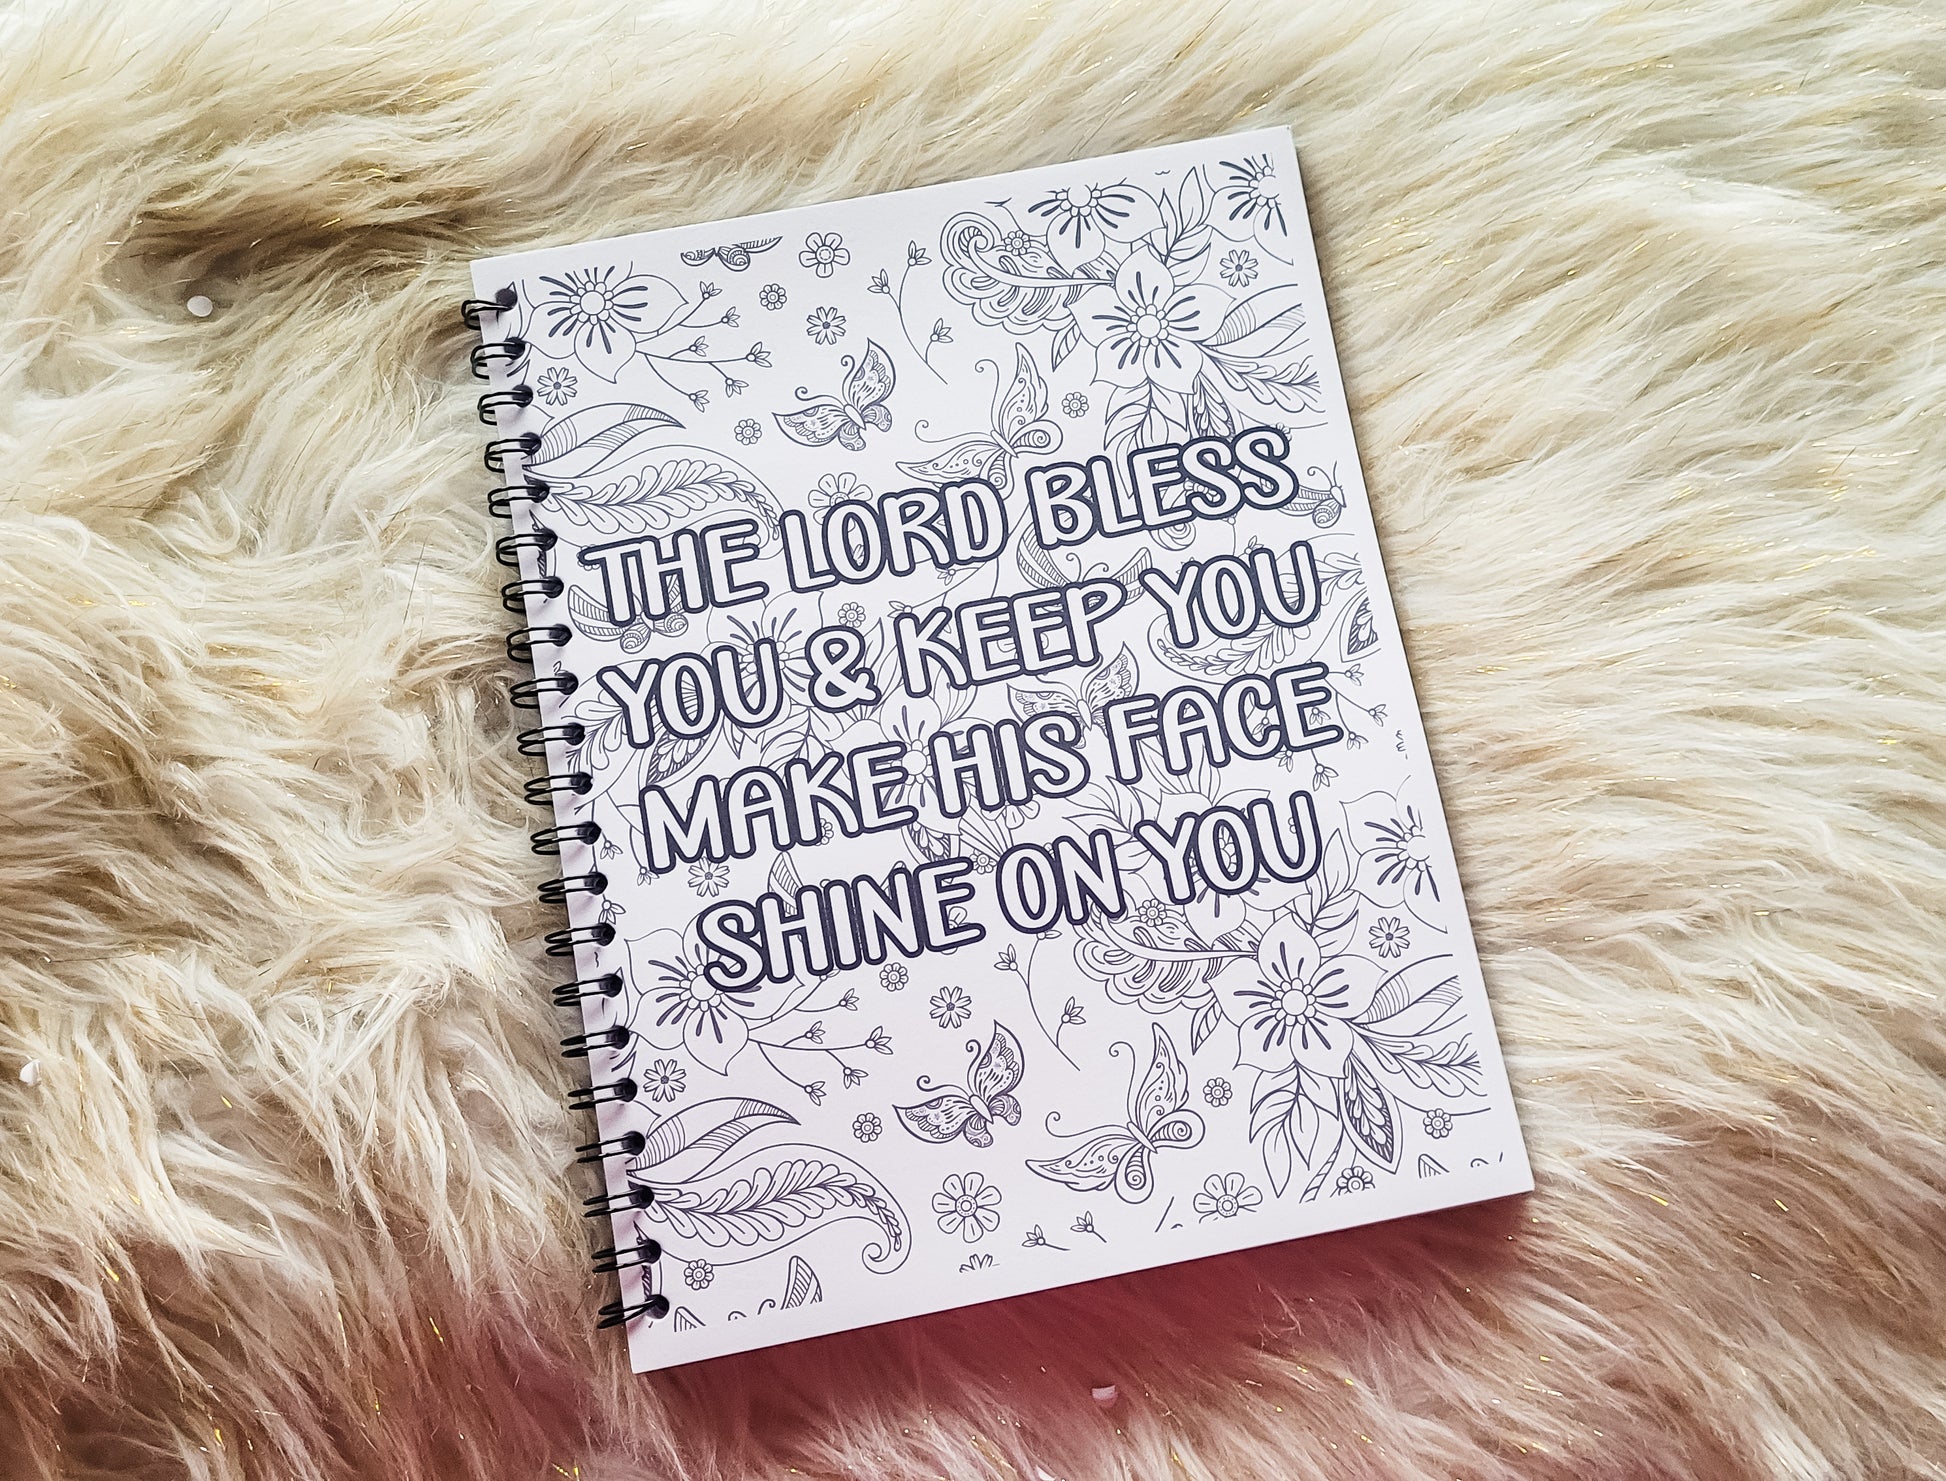 THE LORD BLESS
YOU & KEEP YOU
MAKE HIS FACE
SHINE ON YOU